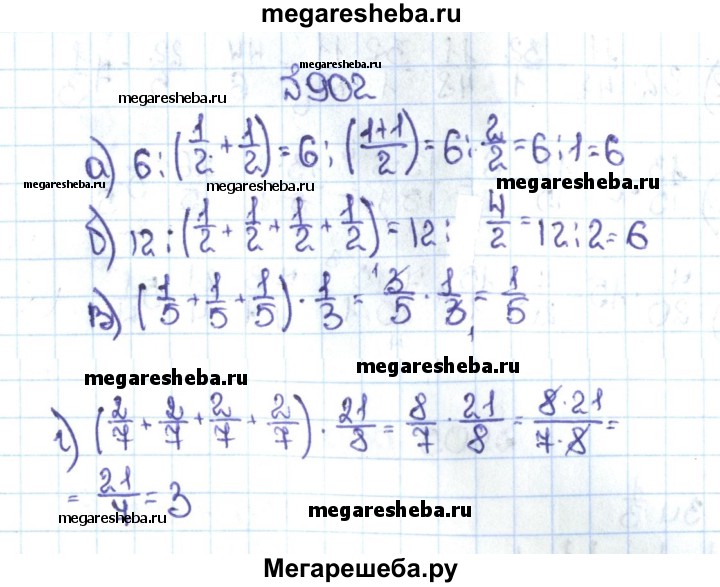 megaresheba.ru
megaresheba.ru
№902
megaresheba.ru
а) 6 : (1/2 + 1/2) = 6 : ((1+1)/2) = 6 : 2/2 = 6 : 1 = 6
megaresheba.ru megaresheba.ru megaresheba.ru
б) 12 : (1/2 + 1/2 + 1/2 + 1/2) = 12 : 4/2 = 12 : 2 = 6
в) (1/5 + 1/5 + 1/5) · 1/3 = 3/5 · 1/3 = 1/5
megaresheba.ru megaresheba.ru
г) (2/7 + 2/7 + 2/7 + 2/7) · 21/8 = 8/7 · 21/8 = (8·21)/(7·8) =
= 21/7 = 3
megaresheba.ru megaresheba.ru
Мегарешеба.ру